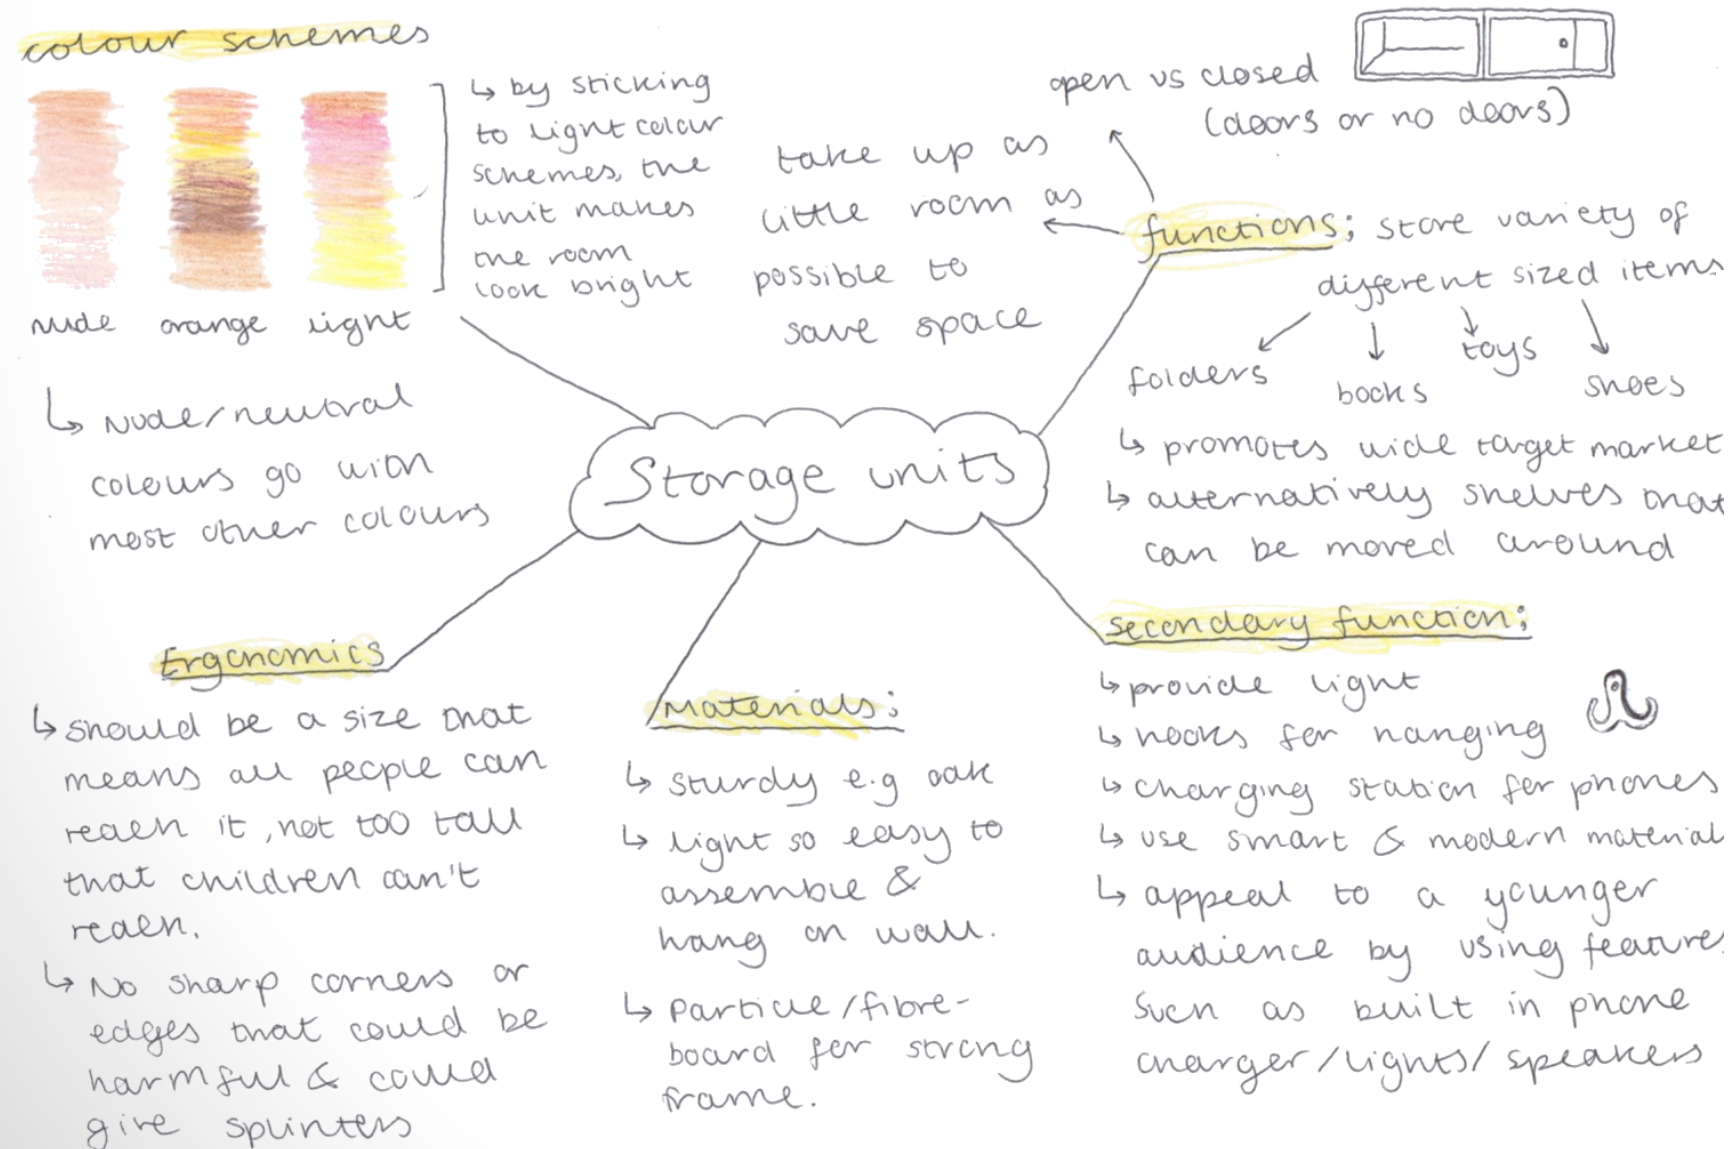 colour schemes
nude orange light
↳ by sticking
to light colour
schemes, the
unit makes
the room
look bright
↳ Nude/neutral
colours go with
most other colours
take up as
little room as
possible to
save space
open vs closed
(doors or no doors)
functions; store variety of
different sized items
folders
books
toys
shoes
↳ promotes wide target market
↳ alternatively shelves that
can be moved around
Storage units
Ergonomics
↳ should be a size that
means all people can
reach it, not too tall
that children can't
reach.
↳ No sharp corners or
edges that could be
harmful & could
give splinters
Materials:
↳ sturdy e.g oak
↳ light so easy to
assemble &
hang on wall.
↳ particle/fibre-
board for strong
frame.
secondary function:
↳ provide light
↳ hooks for hanging
↳ charging station for phones
↳ use smart & modern material
↳ appeal to a younger
audience by using features
such as built in phone
charger/lights/speakers